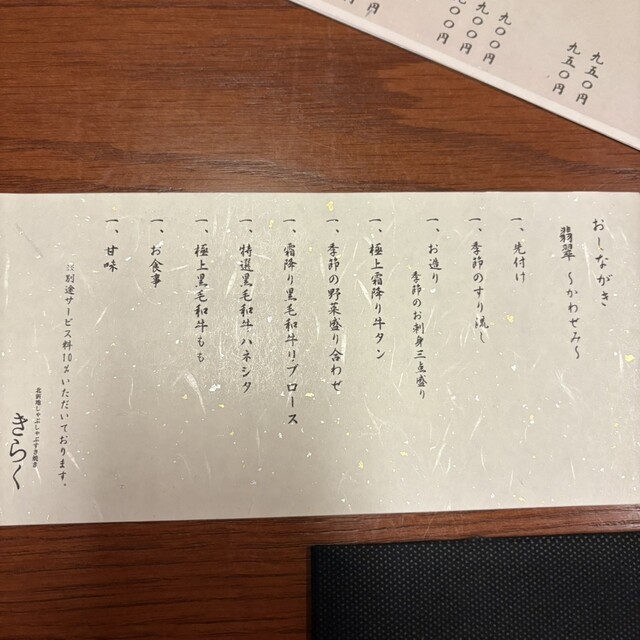 おしながき
翡翠 〜かわせみ〜
一、先付け
一、季節のすり流し
一、お造り
季節のお刺身三点盛り
一、極上霜降り牛タン
一、季節の野菜盛り合わせ
一、霜降り黒毛和牛リブロース
一、特選黒毛和牛ハネシタ
一、極上黒毛和牛もも
一、お食事
一、甘味
別途サービス料10%いただいております。
北新地しゃぶしゃぶすき焼き
きらく
九五〇円
九五〇円
九〇〇円
九〇〇円
〇〇円
円